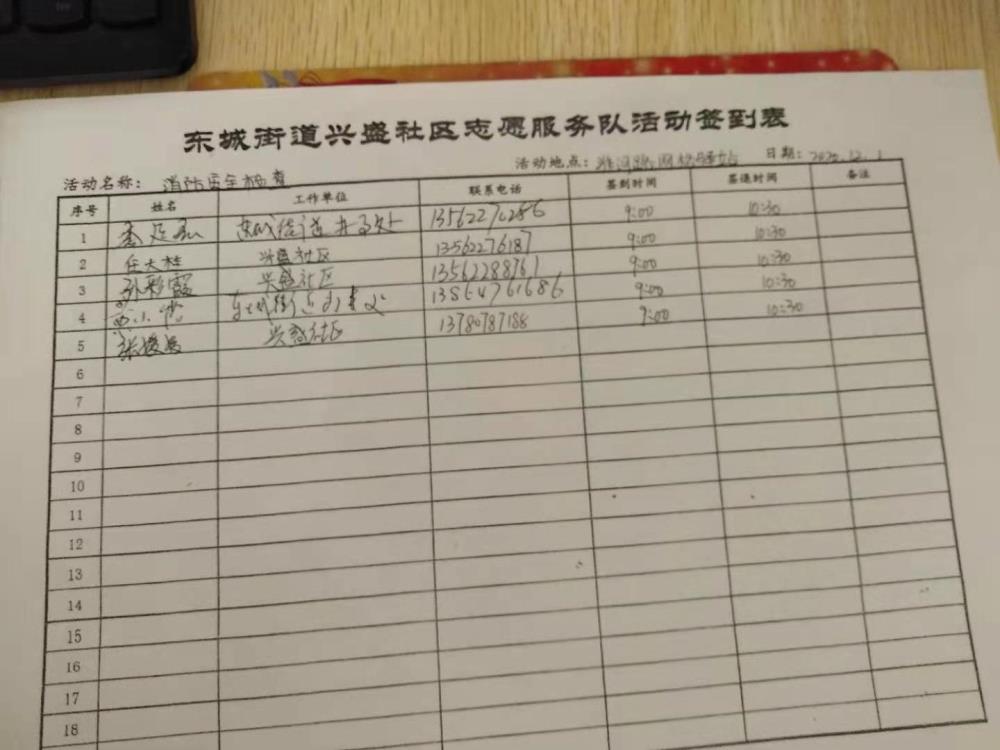 东城街道兴盛社区志愿服务队活动签到表
活动名称：消防安全检查 活动地点：淮河路网格驿站 日期：2020.12.1
序号 姓名 工作单位 联系电话 签到时间 签退时间 备注
1 东城街道办事处 13562270286 9:00 10:30
2 任大柱 兴盛社区 13562276187 9:00 10:30
3 孙彩霞 兴盛社区 13562288761 9:00 10:30
4 东城街道办事处 13864761686 9:00 10:30
5 兴盛社区 13780787188 9:00 10:30
6
7
8
9
10
11
12
13
14
15
16
17
18